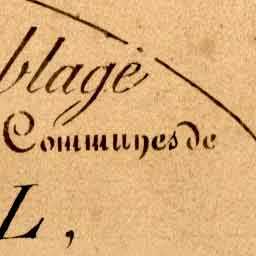 blage
Communes de
L,